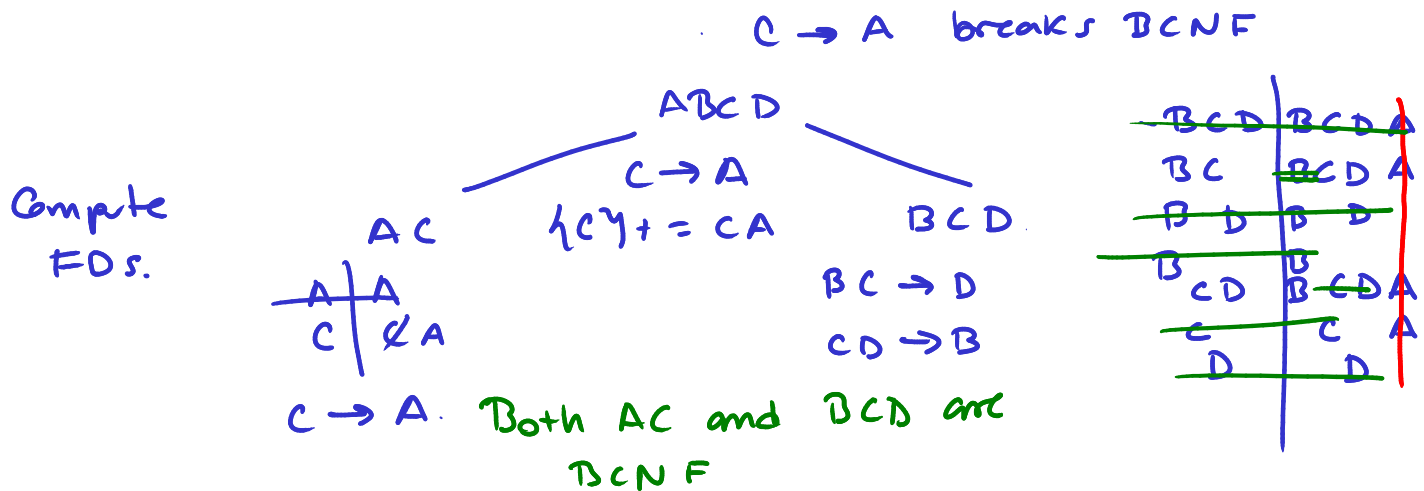 C → A breaks BCNF
ABCD
C → A
{C}+ = CA
Compute
FDs.
AC
A | A
C | C A
C → A.
BCD
BC → D
CD → B
Both AC and BCD are
BCNF
BCD | BCD A
BC | BCD A
B D | B D
B | B
CD | B CD A
C | C A
D | D